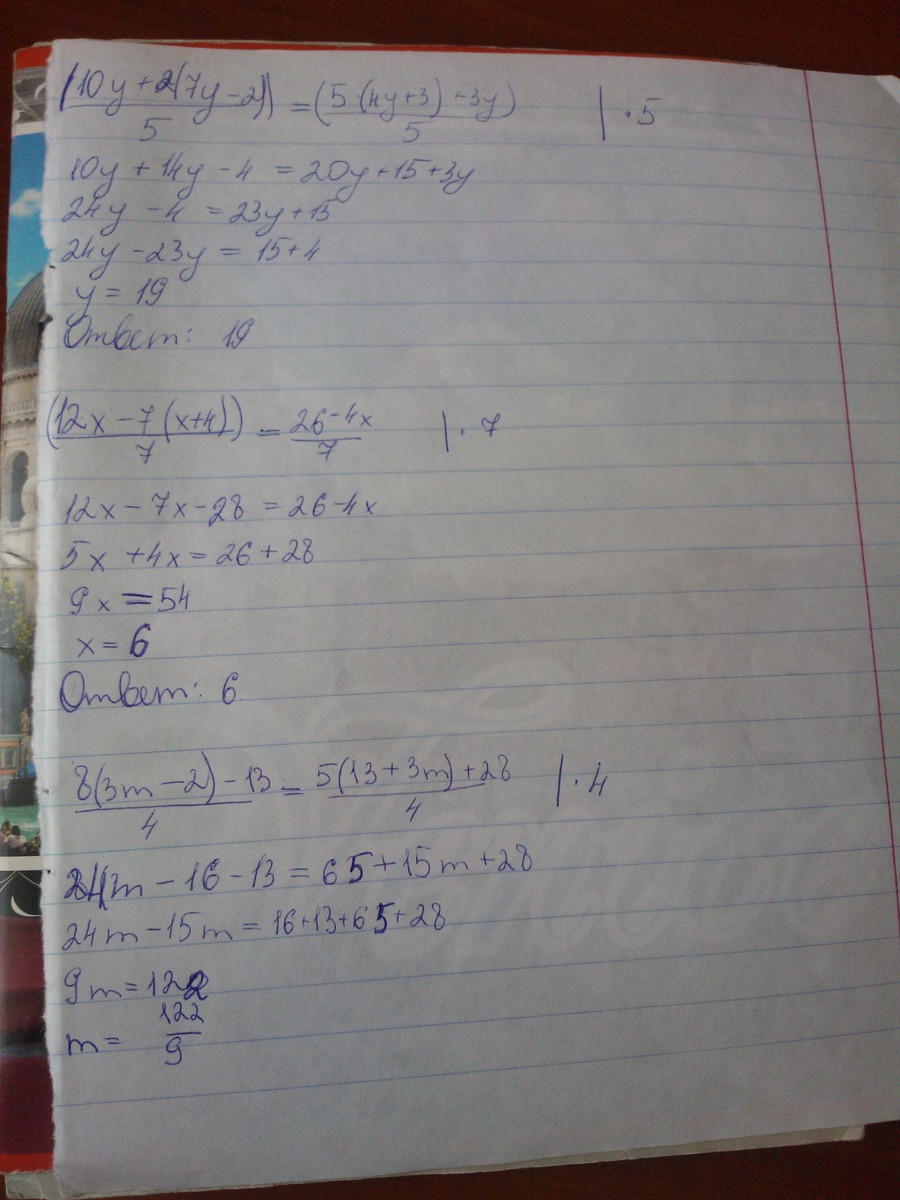 (10y + 2(7y - 2)) / 5 = (5 · (4y + 3) + 3y) / 5 | · 5
10y + 14y - 4 = 20y + 15 + 3y
24y - 4 = 23y + 15
24y - 23y = 15 + 4
y = 19
Ответ: 19
(12x - 7 (x + 4)) / 7 = 26 - 4x / 7 | · 7
12x - 7x - 28 = 26 - 4x
5x + 4x = 26 + 28
9x = 54
x = 6
Ответ: 6
8(3m - 2) - 13 / 4 = 5(13 + 3m) + 28 / 4 | · 4
24m - 16 - 13 = 65 + 15m + 28
24m - 15m = 16 + 13 + 65 + 28
9m = 122
m = 122 / 9